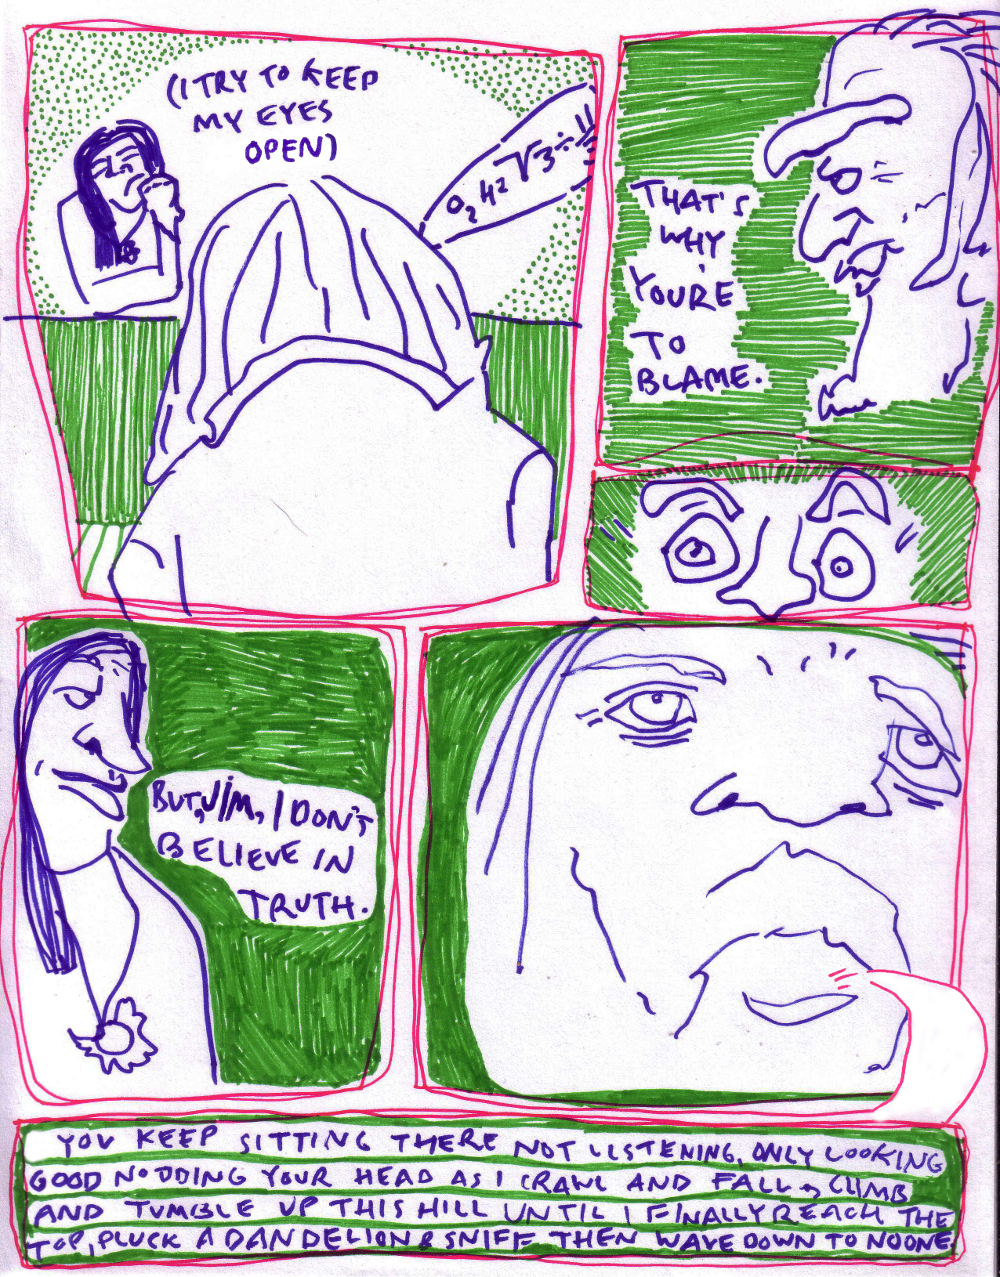 (I TRY TO KEEP
MY EYES
OPEN)
O2 42 √3 ÷
THAT'S
WHY
YOU'RE
TO
BLAME.
BUT, JIM, I DON'T
BELIEVE IN
TRUTH.
YOU KEEP SITTING THERE NOT LISTENING, ONLY LOOKING
GOOD NODDING YOUR HEAD AS I CRAWL AND FALL, CLIMB
AND TUMBLE UP THIS HILL UNTIL I FINALLY REACH THE
TOP, PLUCK A DANDELION & SNIFF THEN WAVE DOWN TO NOONE.